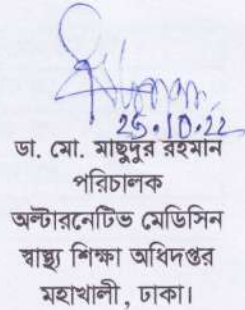 25.10.22
ডা. মো. মাছুদুর রহমান
পরিচালক
অল্টারনেটিভ মেডিসিন
স্বাস্থ্য শিক্ষা অধিদপ্তর
মহাখালী, ঢাকা।